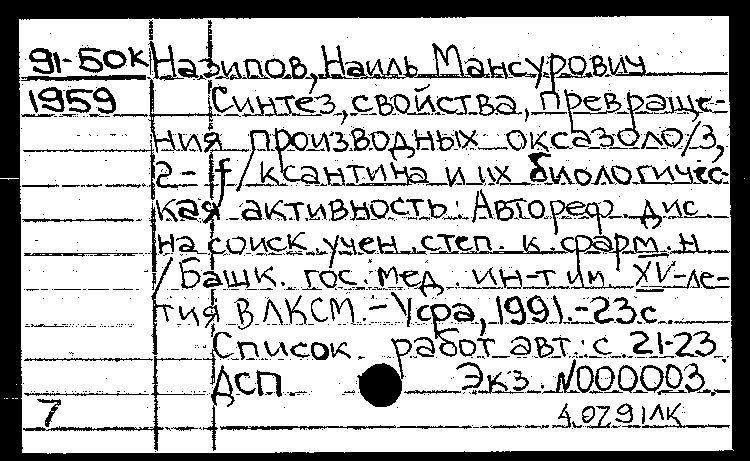 91-50к Назипов, Наиль Мансурович
1959 Синтез, свойства, превраще-
ния производных оксазоло/3,
2-f/ксантина и их биологичес-
кая активность: Автореф. дис.
на соиск. учен. степ. к. фарм. н
/Башк. гос. мед. ин-т им. XV-ле-
тия ВЛКСМ. - Уфа, 1991. - 23с
Список работ авт: с 21-23
ДСП Экз. N000003.
7 4.07.91 ЛК